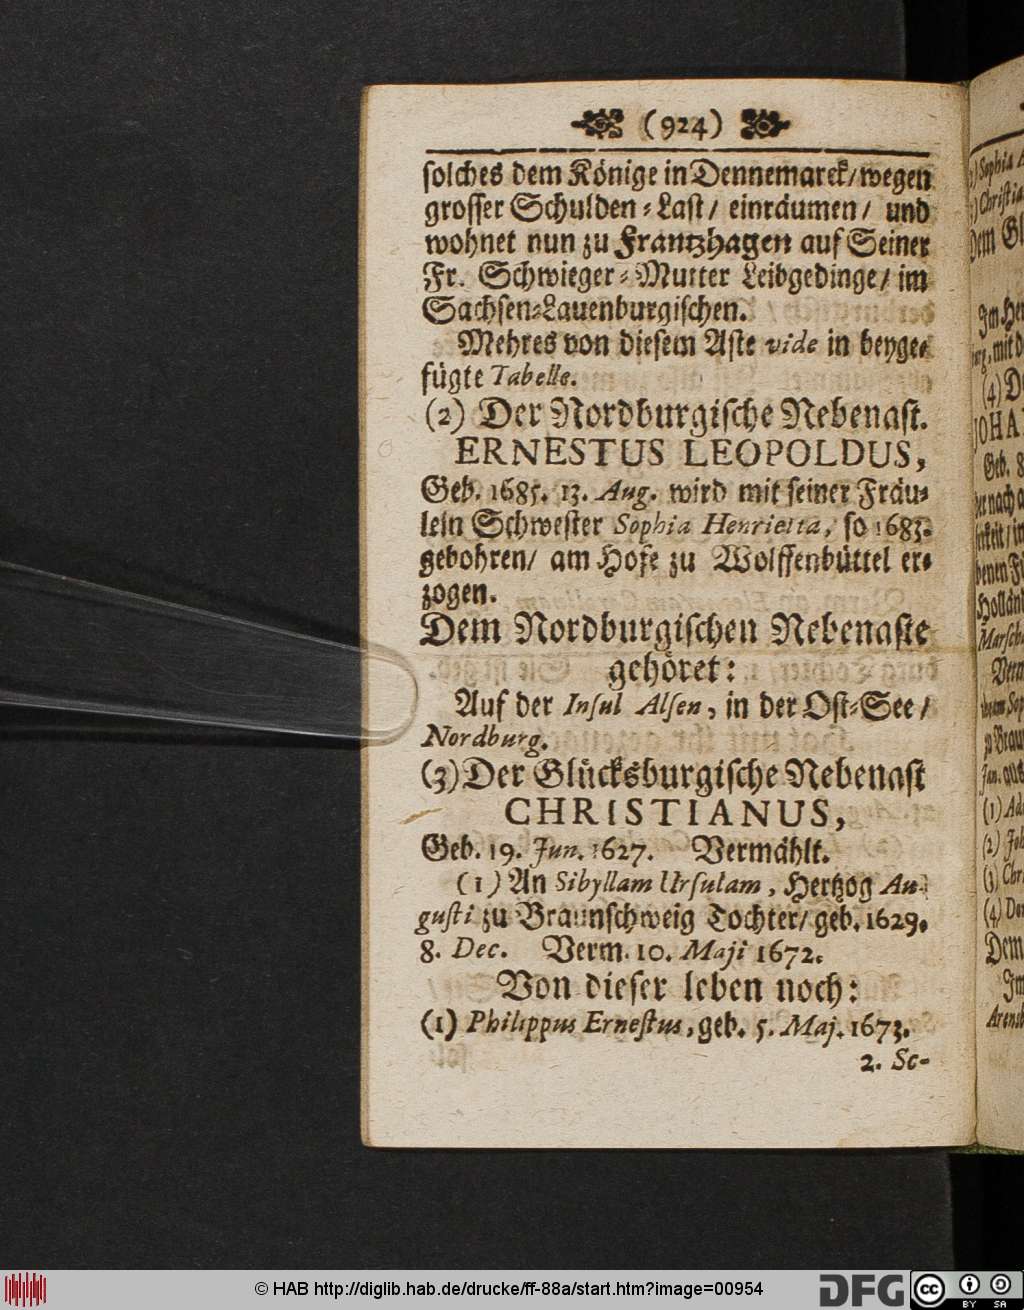 (924)
solches dem Könige in Dennemarck/ wegen
grosser Schulden-Last/ einräumen/ und
wohnet nun zu Frantzhagen auf Seiner
Fr. Schwieger-Mutter Leibgedinge/ im
Sachsen-Lauenburgischen.
Mehres von diesem Aste vide in beyge-
fügte Tabelle.
(2) Der Nordburgische Nebenast.
ERNESTUS LEOPOLDUS,
Geb. 1685. 13. Aug. wird mit seiner Fräu-
lein Schwester Sophia Henrietta, so 1683.
gebohren/ am Hofe zu Wolffenbüttel er-
zogen.
Dem Nordburgischen Nebenaste
gehöret:
Auf der Insul Alsen, in der Ost-See/
Nordburg.
(3) Der Glücksburgische Nebenast
CHRISTIANUS,
Geb. 19. Jun. 1627. Vermählt.
(1) An Sibyllam Ursulam, Hertzog Au-
gusti zu Braunschweig Tochter/ geb. 1629.
8. Dec. Verm. 10. Maji 1672.
Von dieser leben noch:
(1) Philippus Ernestus, geb. 5. Maj. 1673.
2. So-
(4) D
Geb. 8
Holländ
(1) Ad
(2) Joh
(3) Chr
(4) Dor
Dem
Im
Arensb
© HAB http://diglib.hab.de/drucke/ff-88a/start.htm?image=00954
DFG
cc
BY SA